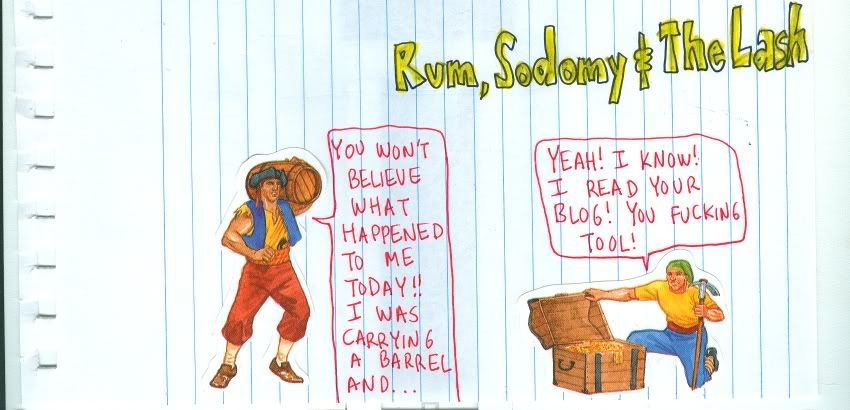 Rum, Sodomy & The Lash
YOU WON'T
BELIEVE
WHAT
HAPPENED
TO ME
TODAY!!
I WAS
CARRYING
A BARREL
AND...
YEAH! I KNOW!
I READ YOUR
BLOG! YOU FUCKING
TOOL!